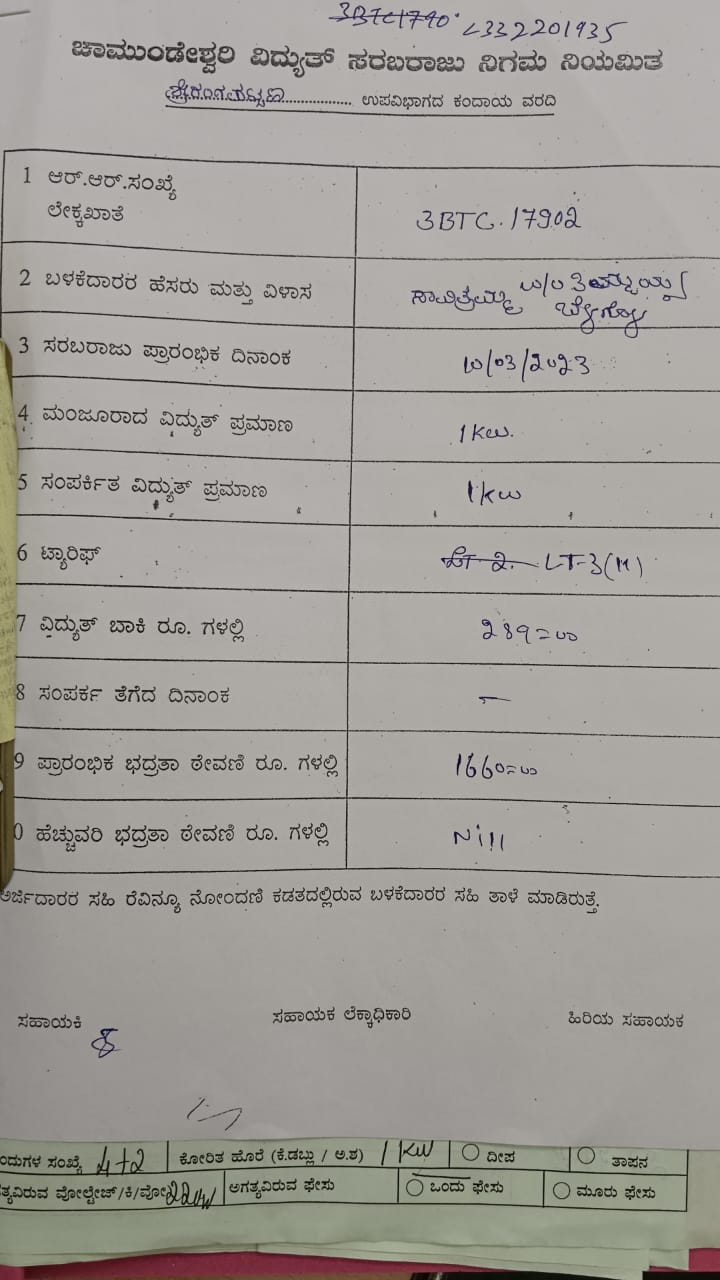 3BTC1790 L332201935
ಚಾಮುಂಡೇಶ್ವರಿ ವಿದ್ಯುತ್ ಸರಬರಾಜು ನಿಗಮ ನಿಯಮಿತ
ಶ್ರೀರಂಗಪಟ್ಟಣ................. ಉಪವಿಭಾಗದ ಕಂದಾಯ ವರದಿ
1 ಆರ್.ಆರ್.ಸಂಖ್ಯೆ
ಲೇಕ್ಕಖಾತೆ
3BTC.17902
2 ಬಳಕೆದಾರರ ಹೆಸರು ಮತ್ತು ವಿಳಾಸ
ಸಾವಿತ್ರಮ್ಮ w/o ತಿಮ್ಮಯ್ಯ
3 ಸರಬರಾಜು ಪ್ರಾರಂಭಿಕ ದಿನಾಂಕ
10/03/2023
4 ಮಂಜೂರಾದ ವಿದ್ಯುತ್ ಪ್ರಮಾಣ
1Kw.
5 ಸಂಪರ್ಕಿತ ವಿದ್ಯುತ್ ಪ್ರಮಾಣ
1kw
6 ಟ್ಯಾರಿಫ್
LT 2. LT-3(M)
7 ವಿದ್ಯುತ್ ಬಾಕಿ ರೂ. ಗಳಲ್ಲಿ
289=00
8 ಸಂಪರ್ಕ ತೆಗೆದ ದಿನಾಂಕ
—
9 ಪ್ರಾರಂಭಿಕ ಭದ್ರತಾ ಠೇವಣಿ ರೂ. ಗಳಲ್ಲಿ
1660=00
0 ಹೆಚ್ಚುವರಿ ಭದ್ರತಾ ಠೇವಣಿ ರೂ. ಗಳಲ್ಲಿ
Nill
ಅರ್ಜಿದಾರರ ಸಹಿ ರೆವಿನ್ಯೂ ನೋಂದಣಿ ಕಡತದಲ್ಲಿರುವ ಬಳಕೆದಾರರ ಸಹಿ ತಾಳೆ ಮಾಡಿರುತ್ತೆ.
ಸಹಾಯಕಿ ಸಹಾಯಕ ಲೆಕ್ಕಾಧಿಕಾರಿ ಹಿರಿಯ ಸಹಾಯಕ
ಂದುಗಳ ಸಂಖ್ಯೆ 4+2 ಕೋರಿತ ಹೊರೆ (ಕೆ.ಡಬ್ಲು / ಅ.ಶ) 1 KW ದೀಪ ತಾಪನ
ತ್ಯವಿರುವ ವೋಲ್ಟೇಜ್/ಕಿ/ವೋ ಅಗತ್ಯವಿರುವ ಫೇಸು ಒಂದು ಫೇಸು ಮೂರು ಫೇಸು